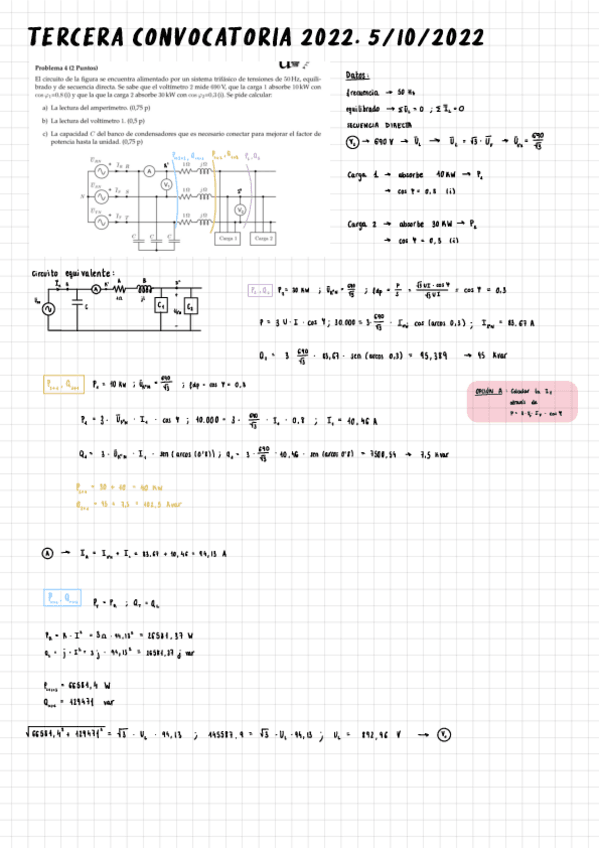 TERCERA CONVOCATORIA 2022. 5/10/2022
Problema 4 (2 Puntos)
El circuito de la figura se encuentra alimentado por un sistema trifásico de tensiones de 50 Hz, equili-
brado y de secuencia directa. Se sabe que el voltímetro 2 mide 690 V, que la carga 1 absorbe 10 kW con
cos φ₁=0.8 (i) y que la que la carga 2 absorbe 30 kW con cos φ₂=0.3 (i). Se pide calcular:
a) La lectura del amperímetro. (0,75 p)
b) La lectura del voltímetro 1. (0,5 p)
c) La capacidad C del banco de condensadores que es necesario conectar para mejorar el factor de
potencia hasta la unidad. (0,75 p)
A
V₁
V₂
1 Ω
jΩ
1 Ω
jΩ
1 Ω
jΩ
N
C
C
C
Carga 1
Carga 2
Datos:
frecuencia → 50 Hz
equilibrado → ΣU = 0 ; ΣI = 0
SECUENCIA DIRECTA
V₂ → 690 V → U_L → U_L = √3 · U_F → = 690/√3
Carga 1 → absorbe 10 KW → P₁
→ cos φ = 0,8 (i)
Carga 2 → absorbe 30 KW → P₂
→ cos φ = 0,3 (i)
Circuito equivalente:
P₂ = 30 KW ; = 690/√3 ; fdp = P/S = √3 UI · cos φ / √3 UI = cos φ = 0.3
P = 3 U · I · cos φ ; 30.000 = 3 · 690/√3 · · cos (arcos 0,3) ; = 83.67 A
Q₂ = 3 690/√3 · 83,67 · sen (arcos 0,3) = 95,389 → 95 Kvar
P₁ = 10 Kw ; = 690/√3 ; fdp = cos φ = 0,8
P₁ = 3 · · I₁ · cos φ ; 10.000 = 3 · 690/√3 · I₁ · 0,8 ; I₁ = 10,46 A
Q₁ = 3 · · I₁ · sen (arcos (0'8)) ; Q₁ = 3 · 690/√3 · 10,46 · sen (arcos 0'8) = 7500,54 → 7,5 Kvar
OPCIÓN A : Calcular la
= 30 + 10 = 40 KW
= 95 + 7,5 = 102,5 Kvar
A → = + I₁ = 83,67 + 10,46 = 94,13 A
= R · I² = 3Ω · 94,13² = 26581,37 W
= j · I² = 3j · 94,13² = 26581,37 j var
= 66581,4 W
= 129471 var
√66581,4² + 129471² = √3 · U_L · 94,13 ; 145587,9 = √3 · U_L · 94,13 ; U_L = 892,96 V → V₁